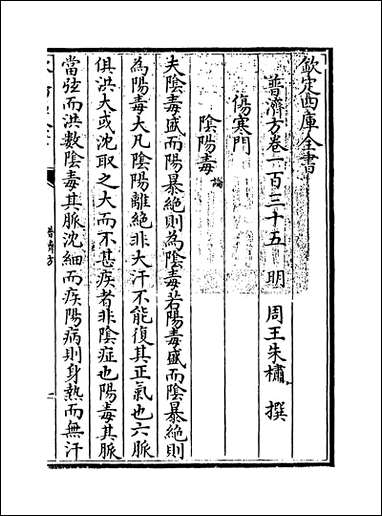 欽定四庫全書
普濟方卷一百三十五　明　周王朱橚　撰
傷寒門
陰陽毒論
夫陰毒盛而陽暴絶則為陰毒若陽毒盛而陰暴絶則
為陽毒大凡陰陽離絶非大汗不能復其正氣也六脈
俱洪大或沈取之大而不甚疾者非陰症也陽毒其脈
當弦而洪數陰毒其脈沈細而疾陽病則身熱而無汗
普濟方